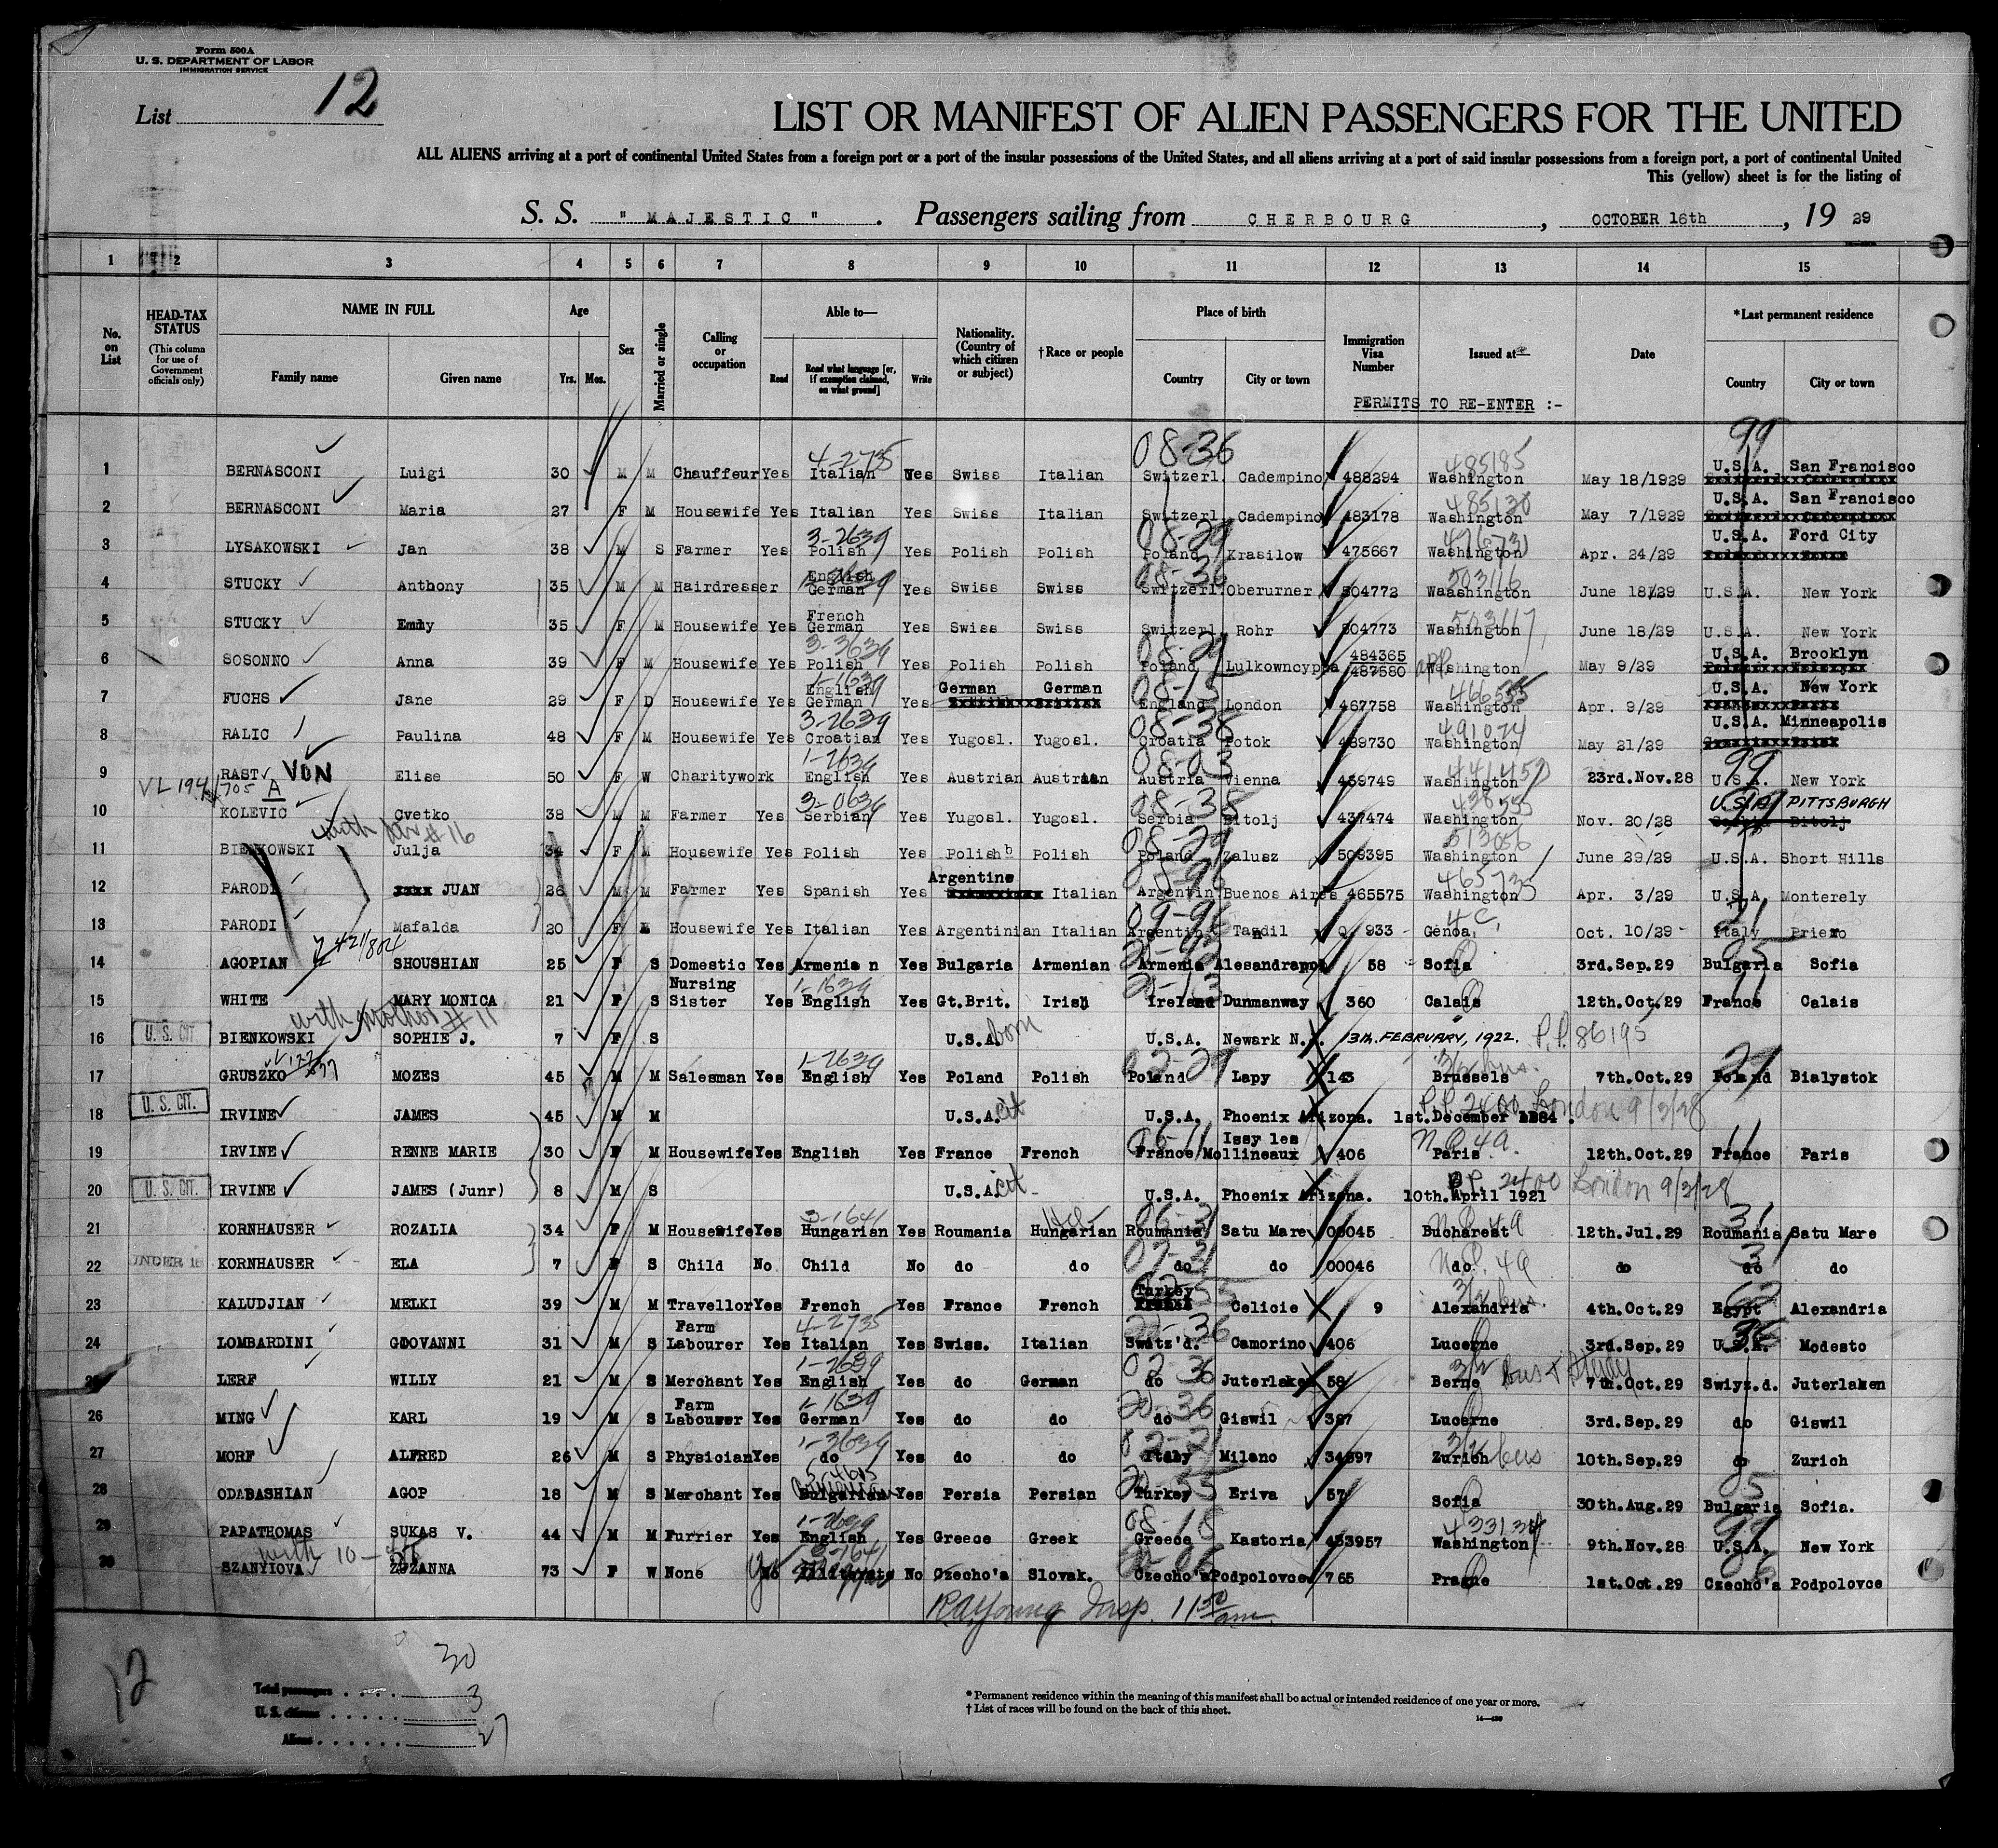 Form 500A
U. S. DEPARTMENT OF LABOR
IMMIGRATION SERVICE
List 12
LIST OR MANIFEST OF ALIEN PASSENGERS FOR THE UNITED
ALL ALIENS arriving at a port of continental United States from a foreign port or a port of the insular possessions of the United States, and all aliens arriving at a port of said insular possessions from a foreign port, a port of continental United
This (yellow) sheet is for the listing of
S. S. " MAJESTIC " . Passengers sailing from CHERBOURG , OCTOBER 16th , 19 29
1 2 3 4 5 6 7 8 9 10 11 12 13 14 15
No. on List HEAD-TAX STATUS (This column for use of Government officials only) NAME IN FULL Family name Given name Age Yrs. Mos. Sex Married or single Calling or occupation Able to— Read Read what language [or, if exemption claimed, on what ground] Write Nationality. (Country of which citizen or subject) †Race or people Place of birth Country City or town Immigration Visa Number Issued at— Date *Last permanent residence Country City or town
PERMITS TO RE-ENTER :-
1 BERNASCONI Luigi 30 M M Chauffeur Yes 4-2735 Italian Yes Swiss Italian 08-36 Switzerl. Cadempino 488294 485185 Washington May 18/1929 99 U.S.A. San Francisco
2 BERNASCONI Maria 27 F M Housewife Yes Italian Yes Swiss Italian Switzerl. Cadempino 483178 485130 Washington May 7/1929 U.S.A. San Francisco
3 LYSAKOWSKI Jan 38 M S Farmer Yes 3-2639 Polish Yes Polish Polish 08-29 Poland Krasilow 475667 Washington Apr. 24/29 U.S.A. Ford City
4 STUCKY Anthony 35 M M Hairdresser English German Yes Swiss Swiss 08-36 Switzerl. Oberurner 504772 503116 Waashington June 18/29 U.S.A. New York
5 STUCKY Emmy 35 F M Housewife Yes French German Yes Swiss Swiss Switzerl. Rohr 504773 503117 Washington June 18/29 U.S.A. New York
6 SOSONNO Anna 39 F M Housewife Yes 3-3639 Polish Yes Polish Polish 08-29 Poland Lulkowncyppa 484365 487580 Washington May 9/29 U.S.A. Brooklyn
7 FUCHS Jane 29 F D Housewife Yes 1-1639 English German Yes German German 08-15 England London 467758 Washington Apr. 9/29 U.S.A. New York
8 RALIC Paulina 48 F M Housewife Yes 3-2639 Croatian Yes Yugosl. Yugosl. 08-38 Croatia Potok 489730 491074 Washington May 21/29 U.S.A. Minneapolis
9 RAST VON Elise 50 F W Charitywork 1-2639 English Yes Austrian Austrian 08-03 Austria Vienna 439749 Washington 23rd.Nov.28 99 U.S.A. New York
10 KOLEVIC Cvetko 38 M M Farmer Yes 3-0639 Serbian Yes Yugosl. Yugosl. 08-38 Serbia Bitolj 437474 Washington Nov. 20/28 U.S.A. PITTSBURGH
11 BIENKOWSKI Julja 34 F M Housewife Yes Polish Yes Polish Polish 08-29 Poland Zalusz 509395 513056 Washington June 29/29 U.S.A. Short Hills
12 PARODI JUAN 26 M M Farmer Yes Spanish Yes Argentine Italian Argentin Buenos Aires 465575 465735 Washington Apr. 3/29 U.S.A. Monterely
13 PARODI Mafalda 20 F M Housewife Yes Italian Yes Argentinian Italian 09-96 Argentin Tandil Q. 933 4C Genoa Oct. 10/29 Italy Priero
14 AGOPIAN SHOUSHIAN 25 F S Domestic Yes Armenia n Yes Bulgaria Armenian Armenia Alesandrapol 58 Sofia 3rd.Sep.29 Bulgaria Sofia
15 WHITE MARY MONICA 21 F S Nursing Sister Yes 1-1639 English Yes Gt.Brit. Irish Ireland Dunmanway 360 Calais 12th.Oct.29 France Calais
with mother # 11
16 U. S. CIT BIENKOWSKI SOPHIE J. 7 F S U.S.A. born U.S.A. Newark N.J. 13th. FEBRUARY, 1922. P.P. 86195
17 GRUSZKO MOZES 45 M M Salesman Yes 1-2639 English Yes Poland Polish 02-29 Poland Lapy 143 3/2 bus. Brussels 7th.Oct.29 29 Poland Bialystok
18 U. S. CIT. IRVINE JAMES 45 M M U.S.A. cit U.S.A. Phoenix Arizona. 1st.December 1884. P.P. 2400 London 9/3/28
19 IRVINE RENNE MARIE 30 F M Housewife Yes English Yes France French 06-11 France Issy les Mollineaux 406 N.Q. 4a. Paris 12th.Oct.29 11 France Paris
20 U. S. CIT. IRVINE JAMES (Junr) 8 M S U.S.A. cit U.S.A. Phoenix Arizona. 10th.April 1921 P.P. 2400 London 9/3/28
21 KORNHAUSER ROZALIA 34 F M Housewife Yes 3-1641 Hungarian Yes Roumania Hungarian 06-31 Roumania Satu Mare 00045 Bucharest 12th.Jul.29 31 Roumania Satu Mare
22 UNDER 16 KORNHAUSER ELA 7 F S Child No Child No do do 07-31 do do 00046 do do 31 do do
23 KALUDJIAN MELKI 39 M M Travellor Yes French Yes France French Turkey Celicie 9 3/2 bus. Alexandria 4th.Oct.29 Egypt Alexandria
24 LOMBARDINI GIOVANNI 31 M S Farm Labourer Yes 4-2735 Italian Yes Swiss. Italian Switz'd. Camorino 406 Lucerne 3rd.Sep.29 U.S.A. Modesto
25 LERF WILLY 21 M S Merchant Yes 1-2639 English Yes do German 02 36 do Juterlaken 58 3/2 Berne 7th.Oct.29 Swiyz.d. Juterlaken
26 MING KARL 19 M S Farm Labourer Yes 1-1639 German Yes do do 20-36 do Giswil 387 Lucerne 3rd.Sep.29 do Giswil
27 MORF ALFRED 26 M S Physician Yes 1-3639 do Yes do do Italy Milano 34597 3/2 bus Zurich 10th.Sep.29 do Zurich
28 ODABASHIAN AGOP 18 M S Merchant Yes Bulgarian Yes Persia Persian Turkey Eriva 57 Sofia 30th.Aug.29 05 Bulgaria Sofia.
29 PAPATHOMAS SUKAS V. 44 M M Furrier Yes 1-2639 English Yes Greece Greek 08-18 Greece Kastoria 433957 Washington 9th.Nov.28 99 U.S.A. New York
30 SZANYIOVA ZUZANNA 73 F W None 3-1641 No Czecho'a Slovak. Czecho'a Podpolovce 765 Prague 1st.Oct.29 06 Czecho'a Podpolovce
RAYoung Insp. 11 30 am.
12
Total passengers 30
U. S. citizens 3
Aliens 27
* Permanent residence within the meaning of this manifest shall be actual or intended residence of one year or more.
† List of races will be found on the back of this sheet.